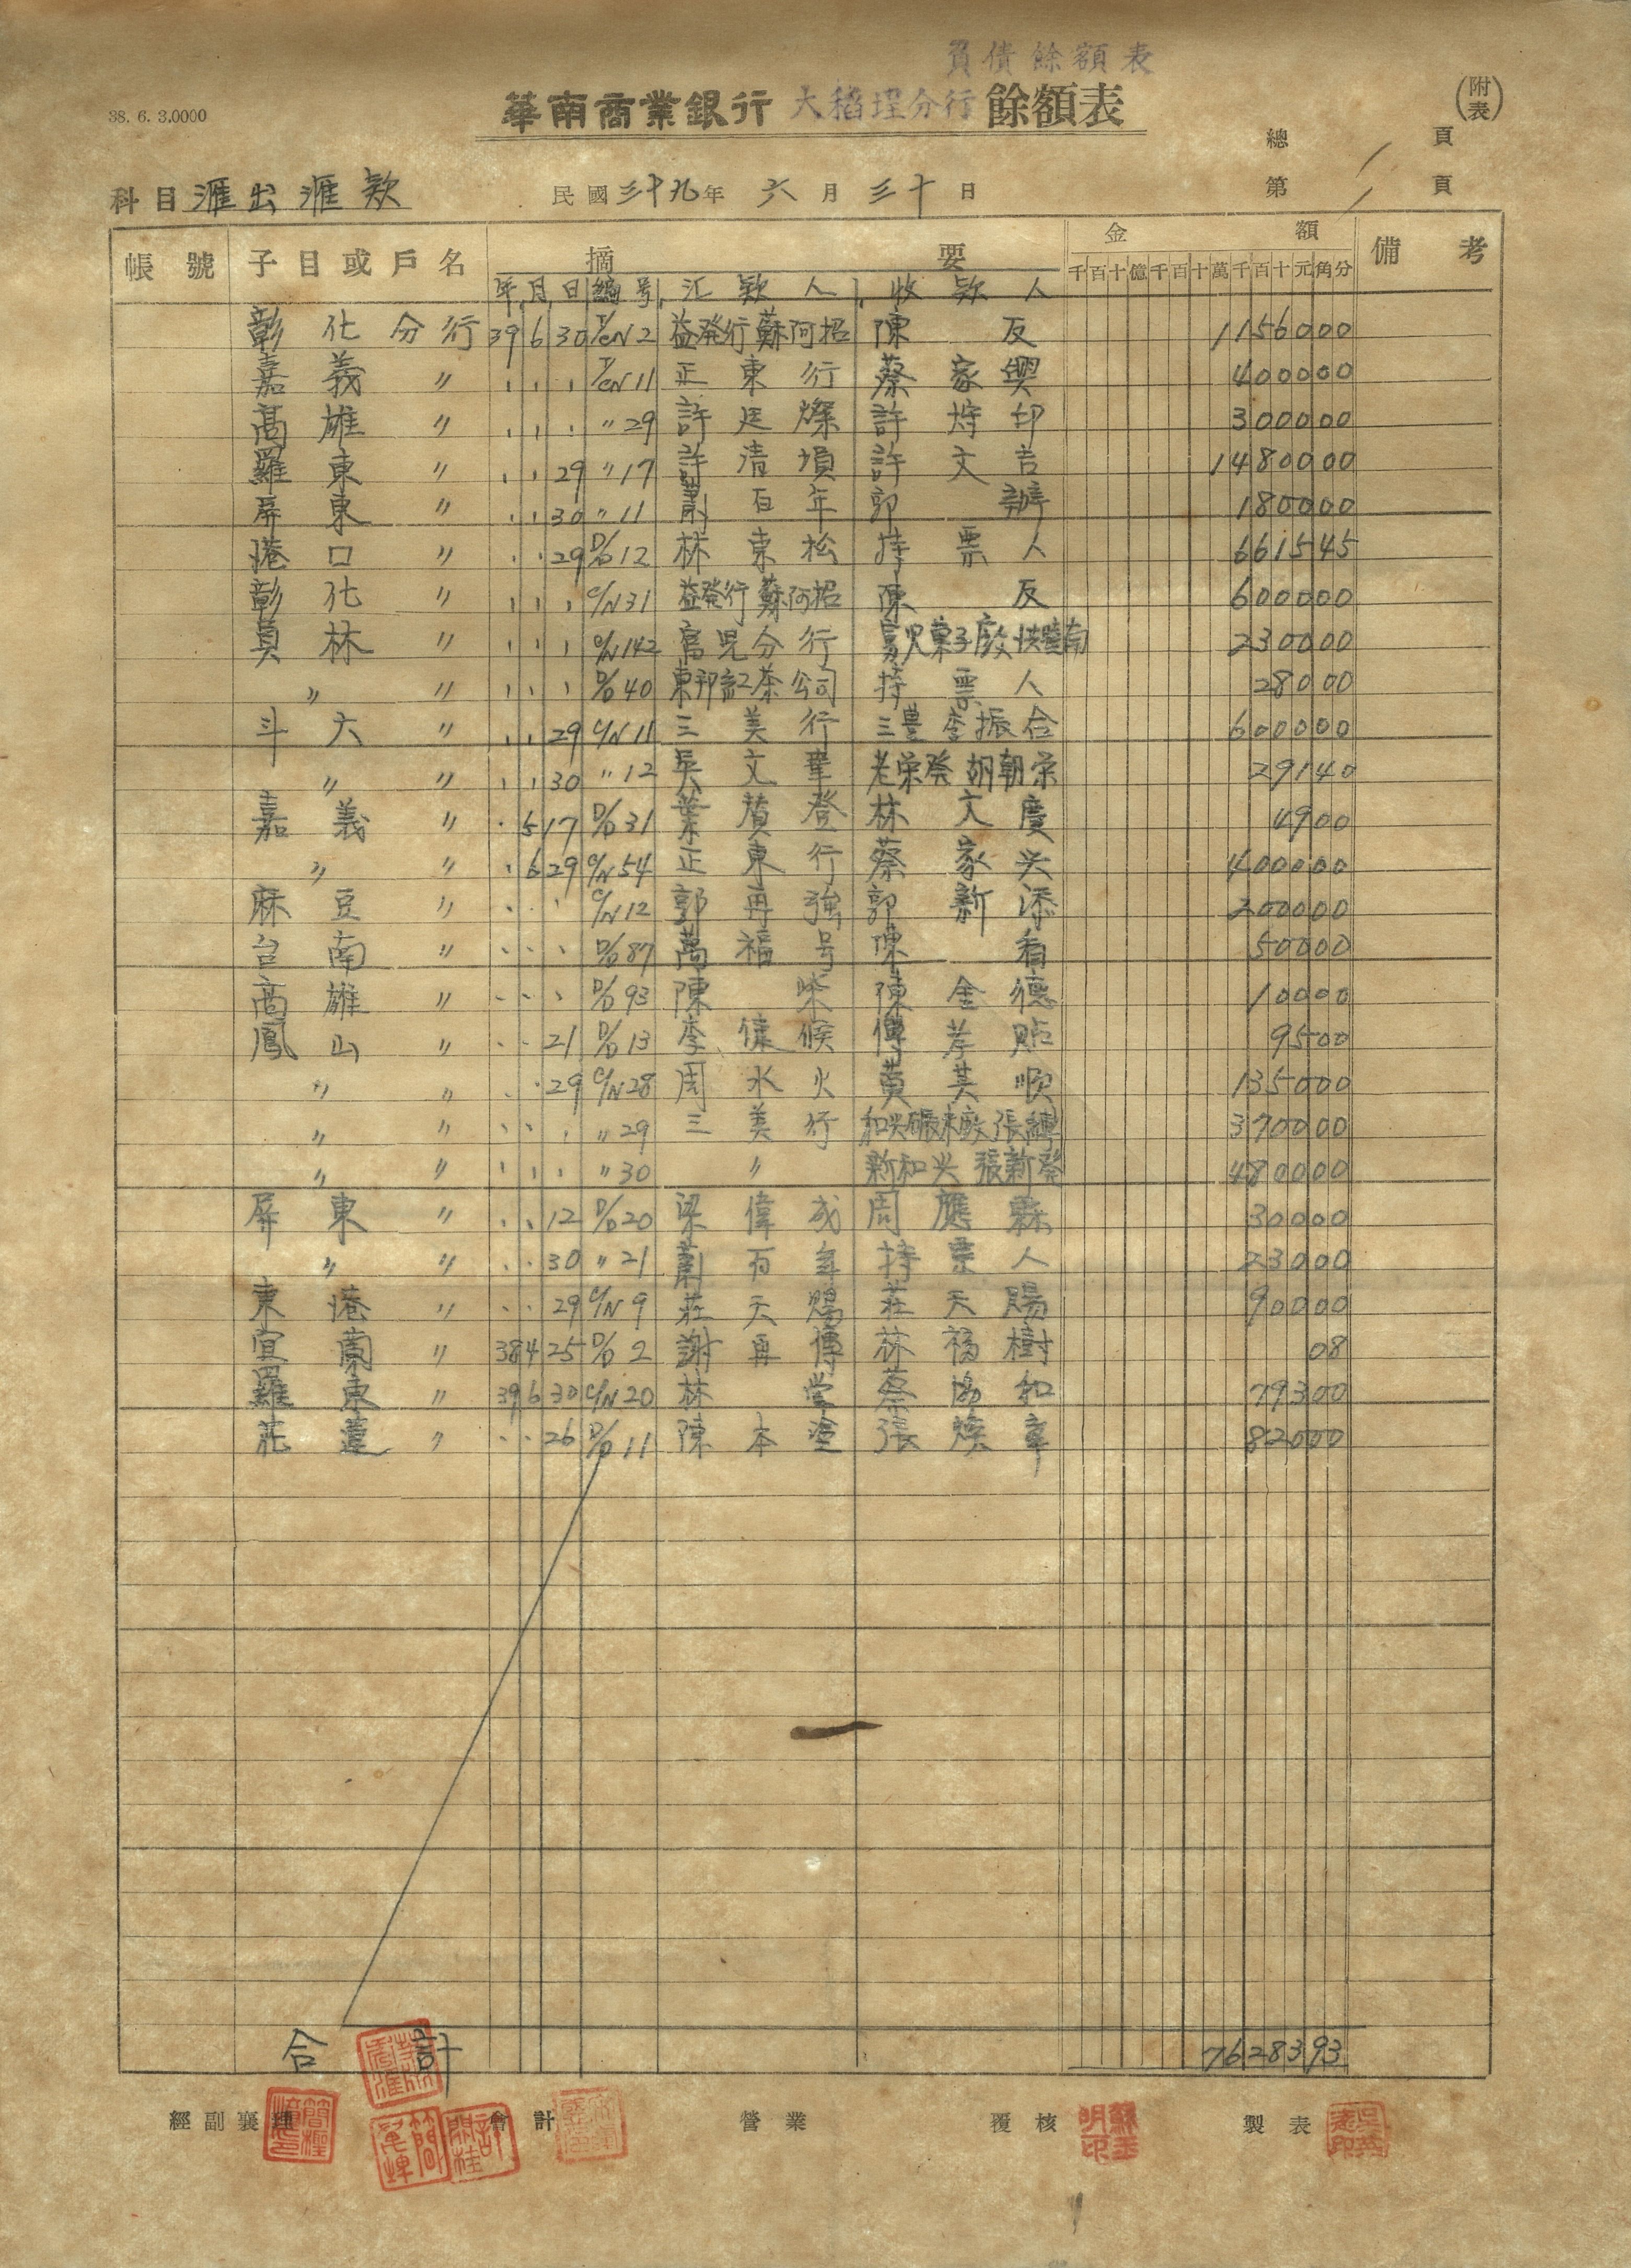 負債餘額表
38. 6. 3.0000 華南商業銀行 大稻埕分行 餘額表 (附表)
總 頁
科目 滙出滙款 民國三十九年 六月三十日 第 頁
帳號 子目或戶名 摘要 金額 備考
千百十億千百十萬千百十元角分
年 月 日 編号 汇款人 收款人
彰化分行 39 6 30 2 益發行 蘇阿招 陳 反 1156000
嘉義 〃 11 正東行 蔡家興 400000
高雄 〃 〃 29 許廷燦 許 印 300000
羅東 〃 29 〃 17 許清塤 許文吉 1480000
屏東 〃 30 〃 11 蕭百年 郭 辦 180000
港口 〃 29 D/D 12 林東松 持票人 661545
彰化 〃 C/N 31 益發行 蘇阿招 陳 反 600000
員林 〃 C/N 142 分行 230000
〃 〃 D/D 40 茶公司 持票人 28000
斗六 〃 29 C/N 11 三美行 三豊 李振合 600000
〃 〃 30 〃 12 吳文華 老榮發 胡朝榮 29140
嘉義 〃 5 17 D/D 31 葉贊登 林文慶 4900
〃 〃 6 29 C/N 54 正東行 蔡家兴 400000
麻豆 〃 C/N 12 郭再強 郭新添 200000
台南 〃 D/D 87 萬福号 陳 看 50000
高雄 〃 D/D 93 陳 陳金德 10000
鳳山 〃 21 D/D 13 李 候 9500
〃 〃 29 C/N 28 周水火 黄其順 135000
〃 〃 〃 29 三美行 和兴碾米廠 張 370000
〃 〃 〃 30 〃 新和兴 張新發 480000
屏東 〃 12 D/D 20 梁偉成 周應 30000
〃 〃 30 〃 21 蕭百年 持票人 23000
東港 〃 29 C/N 9 莊天賜 莊天賜 90000
宜蘭 〃 38 4 25 D/D 2 謝再傳 林福樹 08
羅東 〃 39 6 30 C/N 20 林 掌 蔡協和 79300
花蓮 〃 26 D/D 11 陳本塗 張煥章 82000
合計 7628393
經副襄理 會計 營業 覆核 製表